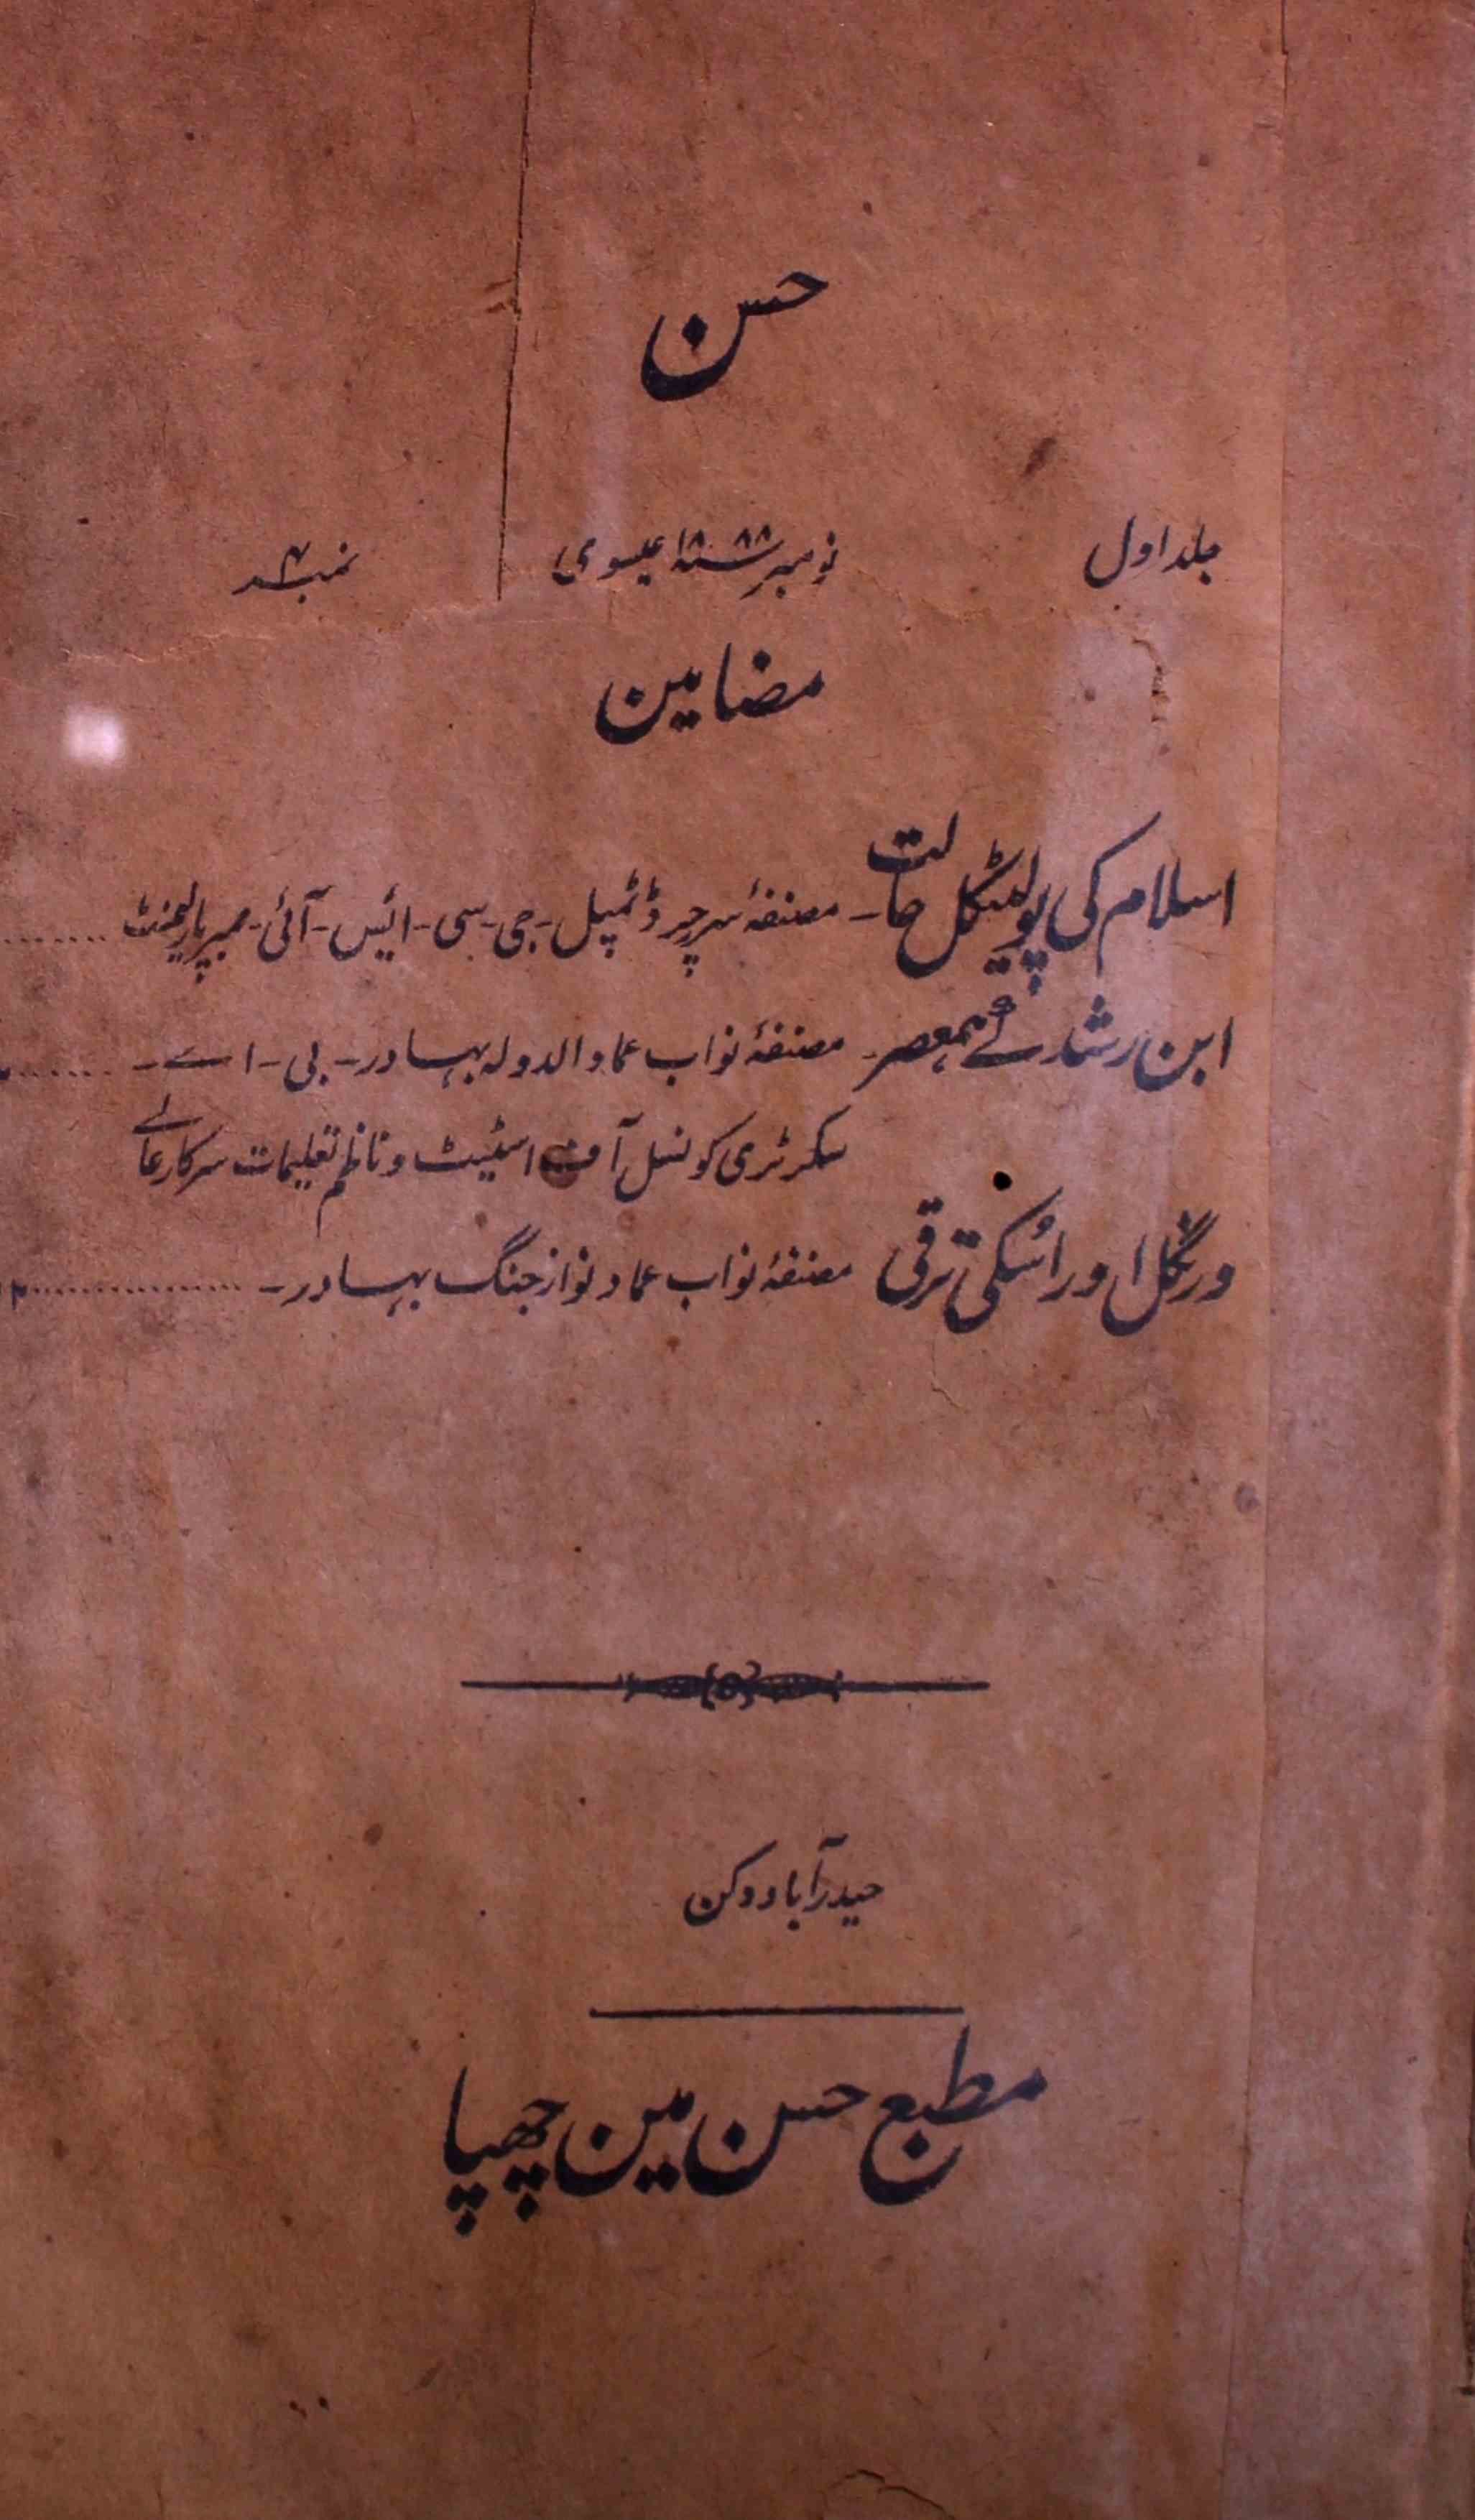 حسن
جلد اول نومبر سنہ ۱۸۸۸ عیسوی نمبر ۴
مضامین
اسلام کی پولیٹکل حالت۔ مصنفۂ سر رچرڈ ٹمپل۔ جی۔ سی۔ ایس۔ آئی۔ ممبر پارلیمنٹ ........
ابن رشد کے ہمعصر۔ مصنفۂ نواب عماد الدولہ بہادر۔ بی۔ اے۔ ........
سکرٹری کونسل آف اسٹیٹ و ناظم تعلیمات سرکار عالے
ورنگل اور اسکی ترقی مصنفۂ نواب عماد نواز جنگ بہادر۔ ................
حیدرآباد دکن
مطبع حسن مین چھپا